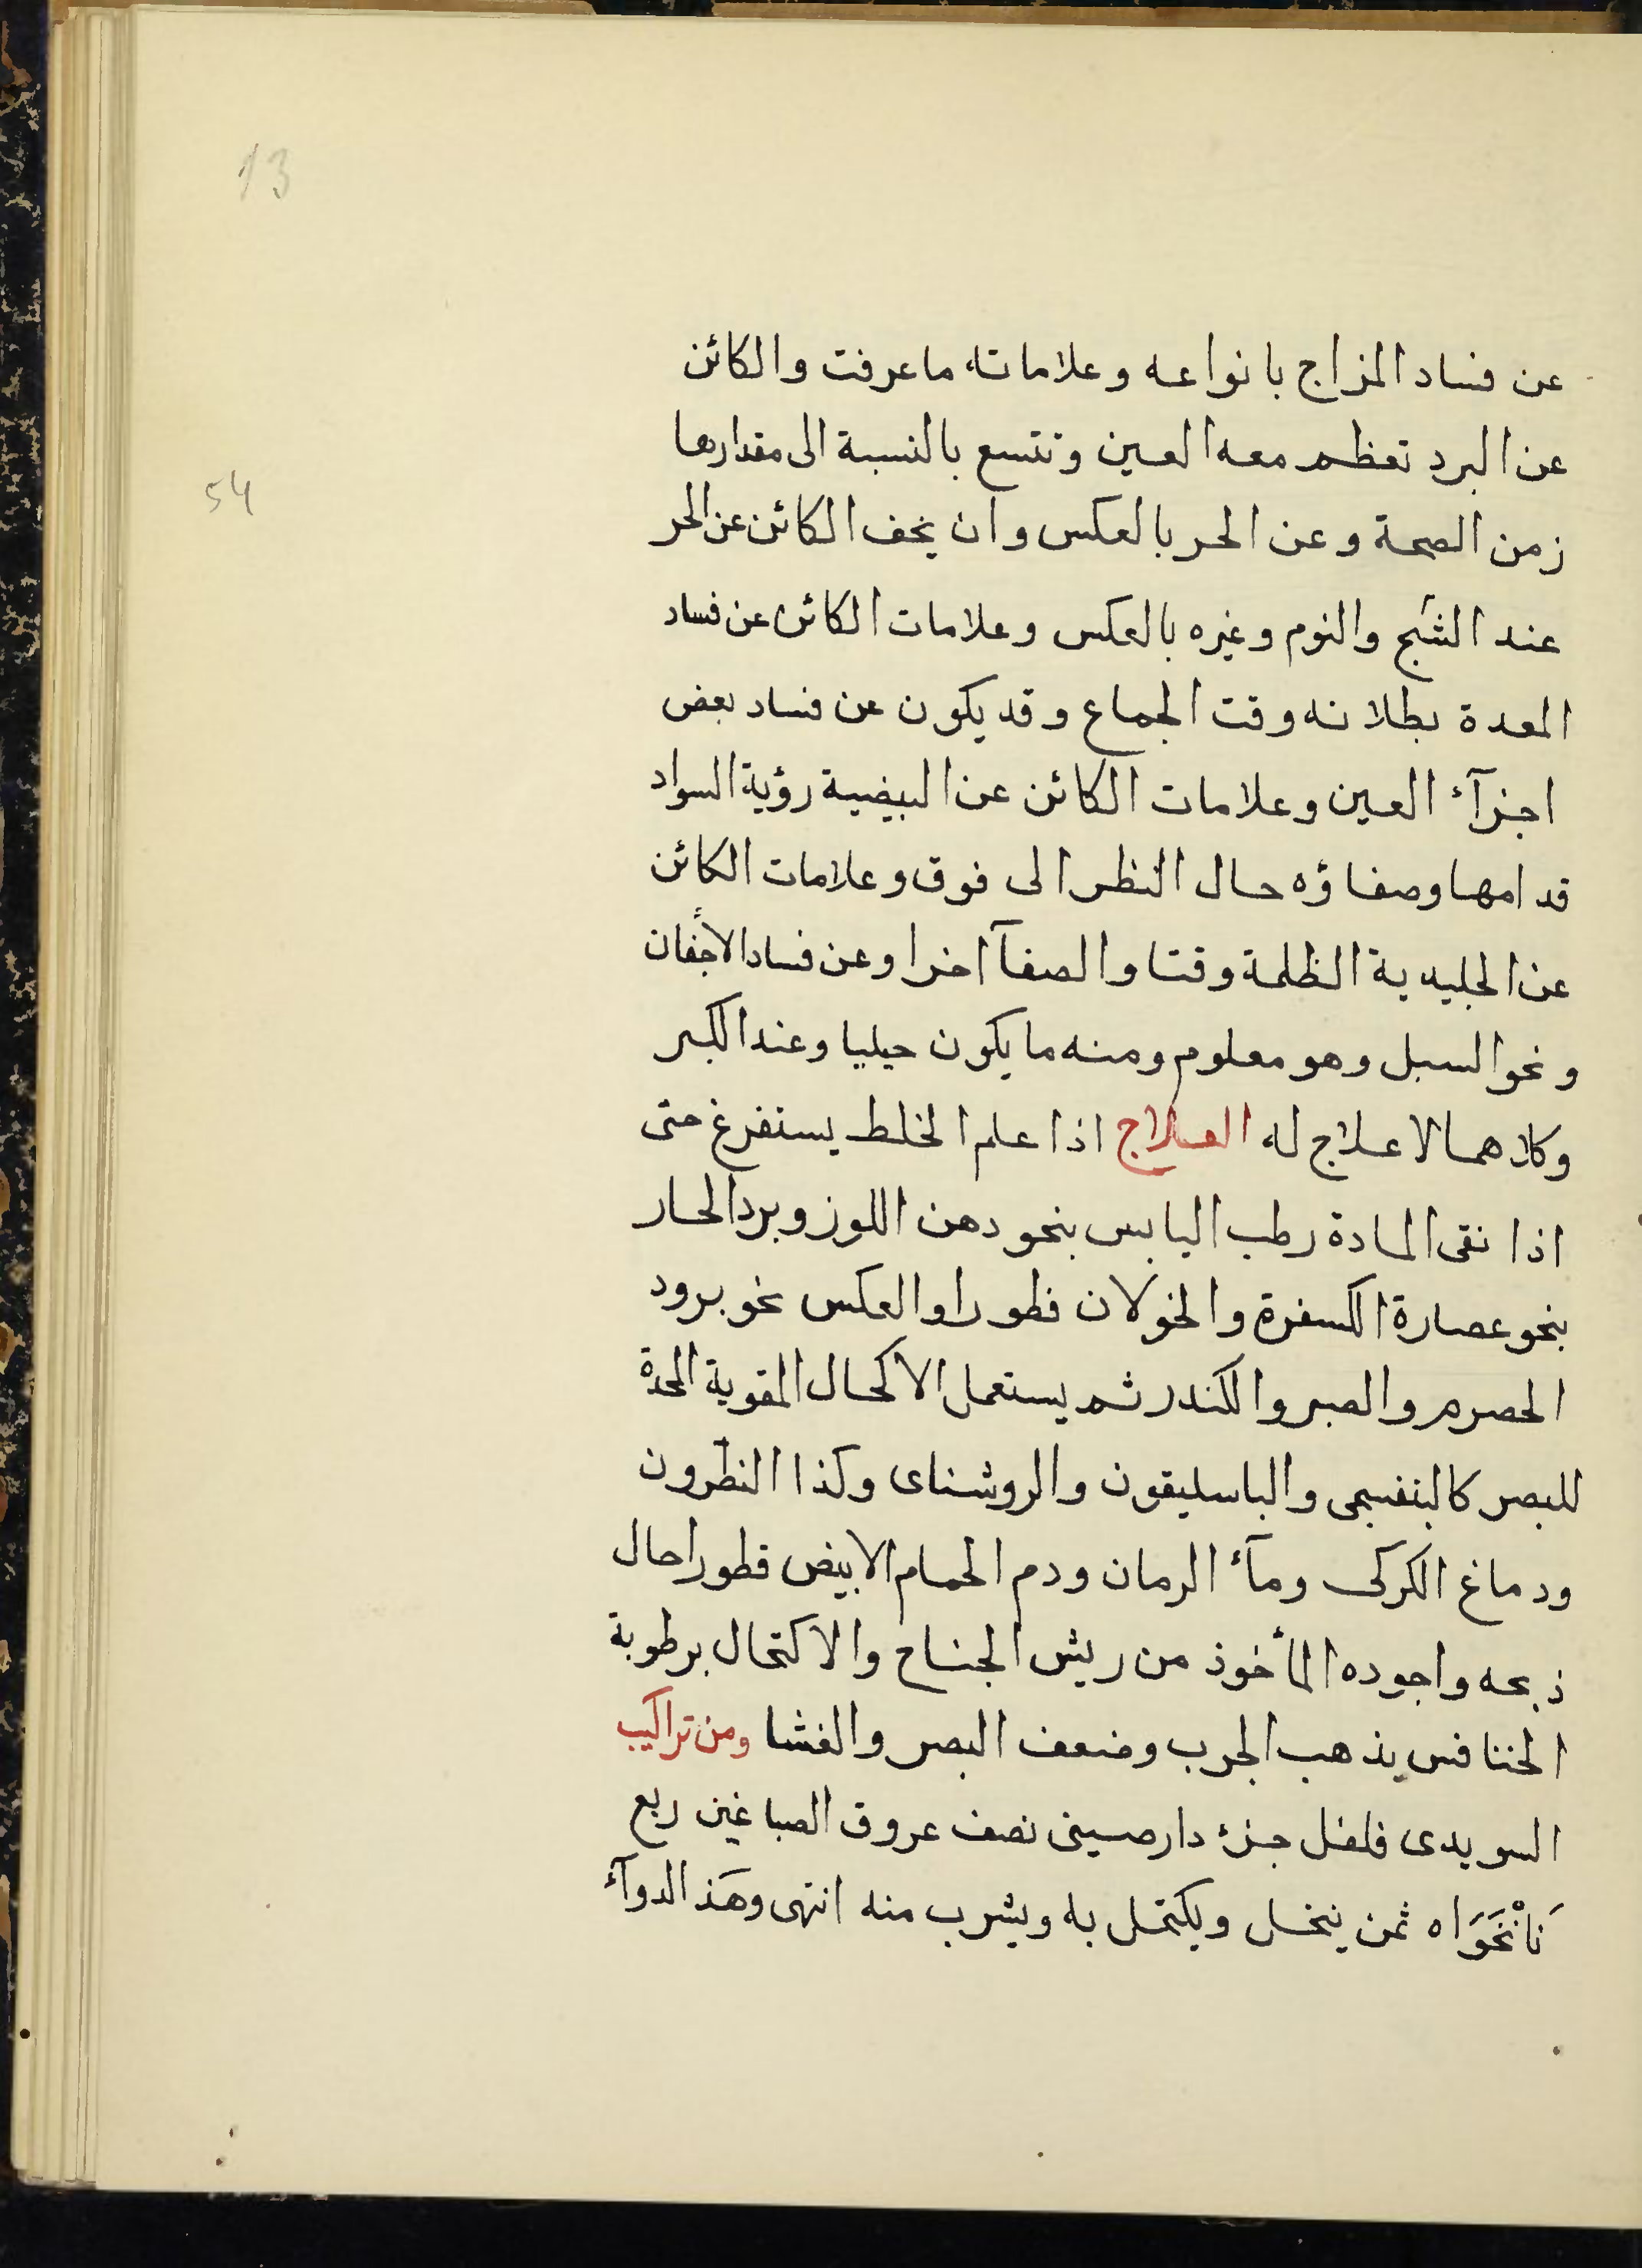 13
عن فساد المزاج بانواعه وعلاماته ما عرفت والكائن
عن البرد تعظم معه العين وتتسع بالنسبة الى مقدارها
54
زمن الصحة وعن الحر بالعكس وان يخف الكائن عن الحر
عند الشبع والنوم وغيره بالعكس وعلامات الكائن عن فساد
المعدة بطلانه وقت الجماع وقد يكون عن فساد بعض
اجزآء العين وعلامات الكائن عن البيضية رؤية السواد
قدامها وصفاؤه حال النظر الى فوق وعلامات الكائن
عن الجليدية الظلمة وقتا والصفآ اخرا وعن فساد الأجفان
ونحو السبل وهو معلوم ومنه ما يكون جبليا وعند الكبر
وكلاهما لا علاج له العلاج اذا علم الخلط يستفرغ حتى
اذا نقى المادة رطب اليابس بنحو دهن اللوز وبرد الحار
بنحو عصارة الكسفرة والخولان قطورا والعكس نحو برود
الحصرم والصبر والكندر ثم يستعمل الاكحال المقوية المحدة
للبصر كالبنفسجى والباسليقون والروشناى وكذا النطرون
ودماغ الكركى ومآء الرمان ودم الحمام الابيض قطورا حال
ذبحه واجوده المأخوذ من ريش الجناح والاكتحال برطوبة
الخنافس يذهب الجرب وضعف البصر والغشا ومن تراكيب
السويدى فلفل جزء دارصينى نصف عروق الصباغين ربع
نَانْخَوَاه ثمن ينخل ويكتحل به ويشرب منه انتهى وهَذ الدوآء